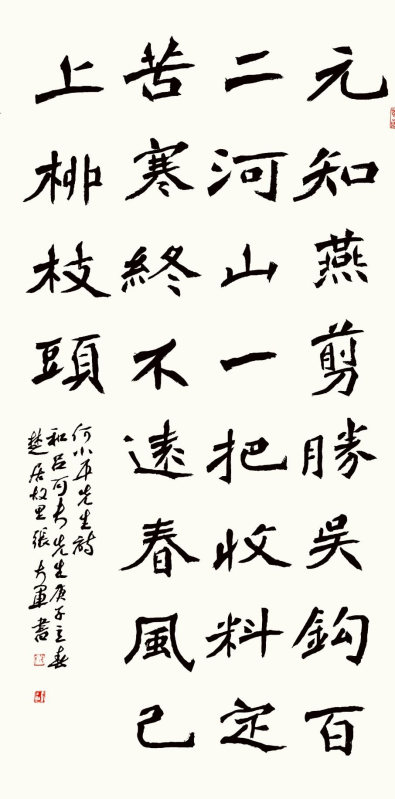 元知燕剪勝吳鈎百
二河山一把收料定
苦寒終不遠春風已
上柳枝頭
何小平先生詩
和吕可夫先生庚子立春
楚居故里張大軍書